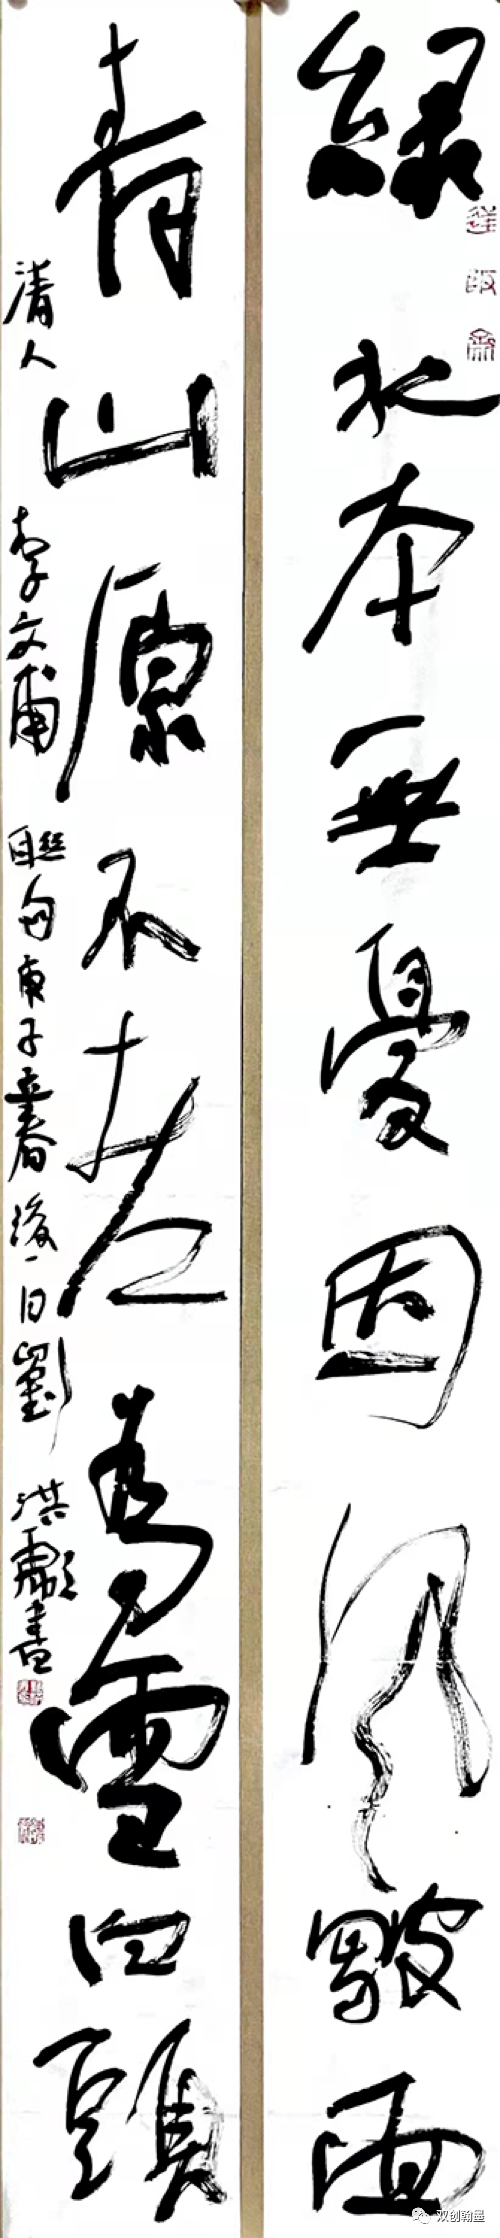 綠水本無憂因風皺面
青山原不老為雪白頭
清人李文甫聯句庚子立春後一日劉洪彪書
双创翰墨